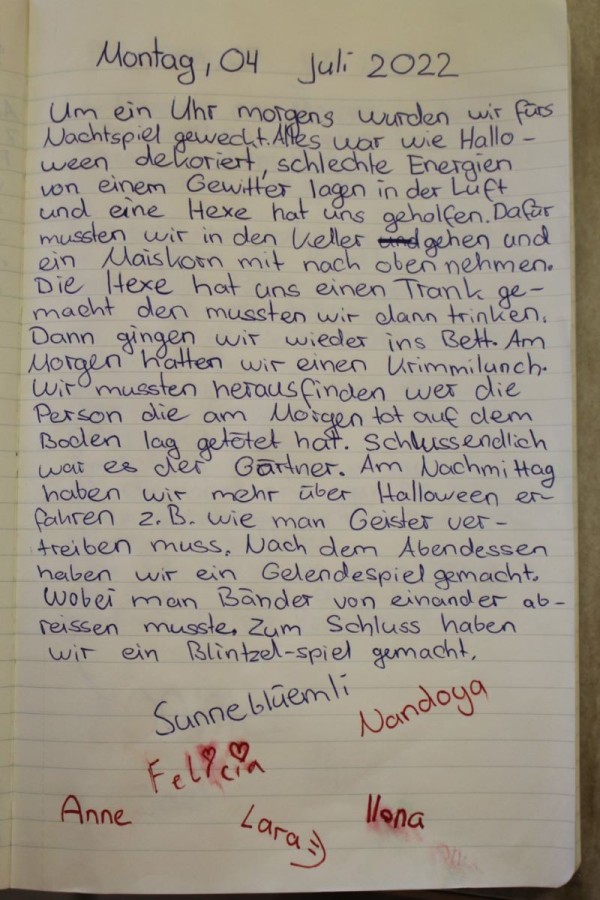 Montag, 04 Juli 2022
Um ein Uhr morgens wurden wir fürs
Nachtspiel geweckt. Alles war wie Hallo-
ween dekoriert, schlechte Energien
von einem Gewitter lagen in der Luft
und eine Hexe hat uns geholfen. Dafür
mussten wir in den Keller und gehen und
ein Maiskorn mit nach oben nehmen.
Die Hexe hat uns einen Trank ge-
macht den mussten wir dann trinken.
Dann gingen wir wieder ins Bett. Am
Morgen hatten wir einen Krimmilunch.
Wir mussten herausfinden wer die
Person die am Morgen tot auf dem
Boden lag getötet hat. Schlussendlich
war es der Gärtner. Am Nachmittag
haben wir mehr über Halloween er-
fahren z.B. wie man Geister ver-
treiben muss. Nach dem Abendessen
haben wir ein Gelendespiel gemacht.
Wobei man Bänder von einander ab-
reissen musste. Zum Schluss haben
wir ein Blintzel-spiel gemacht.
Sunneblüemli
Nandoya
Felicia
Anne
Lara :)
Ilona